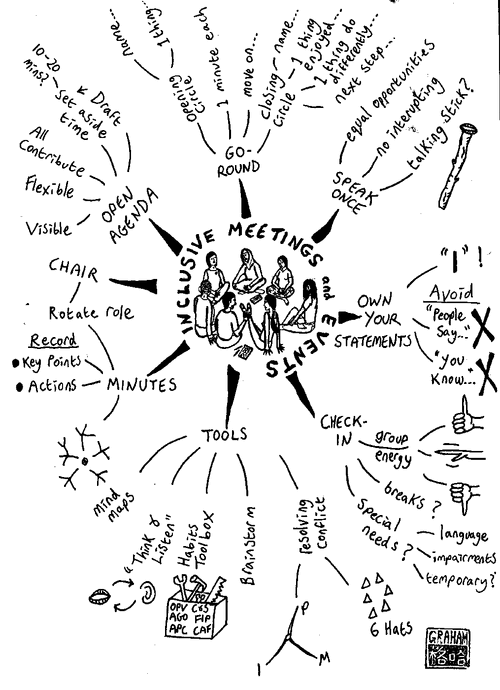 INCLUSIVE MEETINGS
and
EVENTS
OPEN
AGENDA
Draft
set aside
time
10-20
mins?
All
Contribute
Flexible
Visible
GO-
ROUND
Opening
Circle
name...
1 thing...
1 minute each
move on...
closing
circle
name...
1 thing
enjoyed...
1 thing do
differently...
next step...
SPEAK
ONCE
equal opportunities
no interupting
talking stick?
OWN
YOUR
STATEMENTS
"I" !
Avoid
"People
Say..."
"You
Know..."
CHECK-
IN
group
energy
breaks?
Special
needs?
language
impairments
temporary?
TOOLS
resolving
conflict
P
I
M
6 Hats
Brainstorm
Habits
Toolbox
OPV C&S
AGO FIP
APC CAF
"Think &
Listen"
mind
maps
MINUTES
Record
Key Points
Actions
CHAIR
Rotate role
GRAHAM
格哈